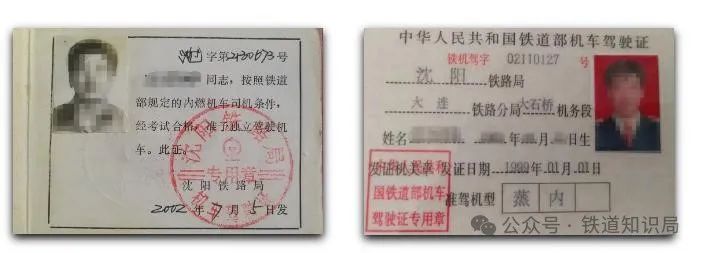 字第230673号
同志，按照铁道
部规定的内燃机车司机条件，
经考试合格，准予独立驾驶机
车。此证。
沈阳铁路局
专用章
沈阳铁路局
2002年7月5日发
中华人民共和国铁道部机车驾驶证
铁机驾字 02110127 号
沈阳 铁路局
大连 铁路分局 大石桥 机务段
姓名 年 月 日生
发证机关章 发证日期：1999年01月01日
准驾机型 蒸 内
中华人民共和
国铁道部机车
驾驶证专用章
公众号·铁道知识局